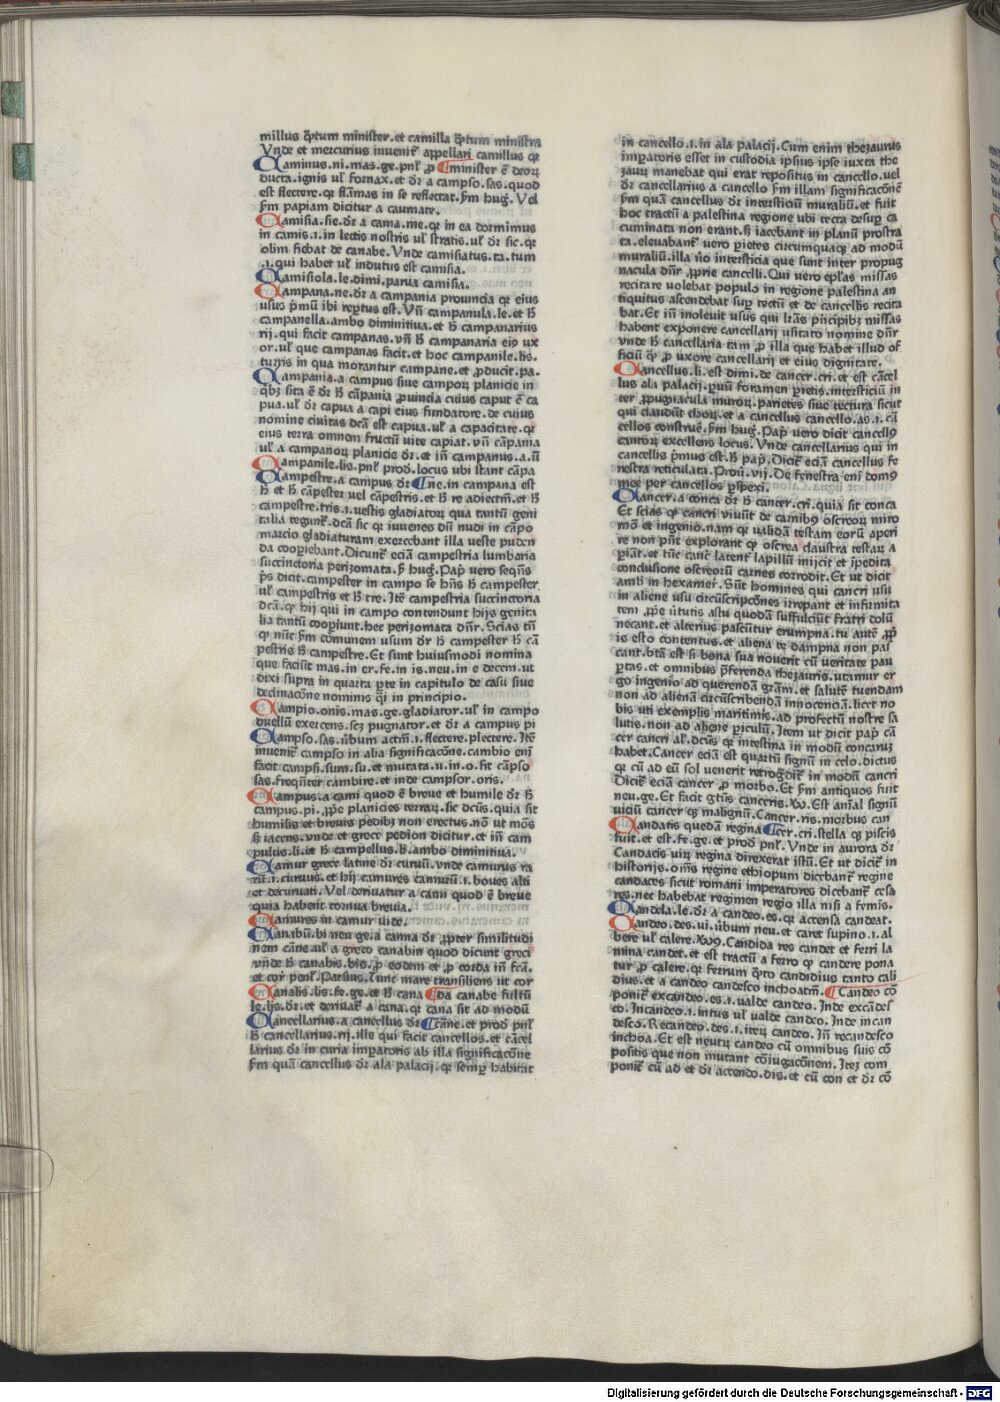 millus q̄tum minister.et camilla q̄tum ministra
Vnde et mercurius invenit᷑ appellari camillus qꝛ
Caminus.ni.mas.ge.pnl᷑ ꝓ ¶minister ē deoꝝ
ducta.ignis ul᷑ fornax.et dꝛ a campso.sas.quod
est flectere.qꝛ flāmas in se reflectat.ẜm hug᷑. Vel
ẜm papiam dicitur a caumate.
Camisia.sie.dꝛ a cama.me.qꝛ in ea dormimus
in camis.i.in lectis nostris ul᷑ stratis.ul᷑ dꝛ sic.qꝛ
olim fiebat de canabe. Vnde camisiatus.ta.tum
.i.qui habet ul᷑ indutus est camisia.
Camisiola.le.dimi.parua camisia.
Campana.ne.dꝛ a campania prouincia qꝛ eius
usus p̄mū ibi reꝑtus est. Vn̄ campanula.le.et h̄
campanella.ambo diminitiua.et h̄ campanarius
rij.qui facit campanas.vn̄ h̄ campanaria eiꝰ ux
or.ul᷑ que campanas facit.et hoc campanile.lis.
turris in qua morantur campane.et ꝓducit.pa.
Campania.a campus siue campoꝝ planicie in
qbꝫ sita ē dꝛ h̄ cāpania ꝓuincia cuius caput ē ca
pua.ul᷑ dꝛ capua a capi eius fundatore.de cuius
nomine ciuitas dcā est capua.ul᷑ a capacitate.qꝛ
eius terra omnem fructū uite capiat.vn̄ cāpania
ul᷑ a campanoꝝ planicie dꝛ.et in̄ campanus.a.ū
Campanile.lis.pnl᷑ prod᷑.locus ubi stant cāpa
Campestre.a campus dꝛ ¶ne.in campana est
h̄ et h̄ cāpester uel cāpestris.et h̄ re adiectm̄.et h̄
campestre.tris.i.uestis gladiatoꝝ qua tantū geni
talia tegunt᷑.dcā sic qꝛ iuuenes dū nudi in cāpo
marcio.gladiaturam exercebant illa ueste puden
da coopiebant.Dicunt᷑ eciā campestria lumbaria
succinctoria perizomata.ẜm hug᷑. Pap᷑ vero seqn̄s
p̄s dicit.campester in campo se hn̄s h̄ campester
ul᷑ campestris et h̄ tre. Itē campestria succinctoria
dcā.qꝙ hij qui in campo contendunt hijs genita
lia tantū coopiunt.hec perizomata dn̄r. Scias tn̄
qꝙ nūc ẜm cōmunem usum dꝛ h̄ campester h̄ cā
pestris h̄ campestre. Et sunt huiusmodi nomina
que faciūt mas.in er.fe.in is.neu.in e decem.ut
dixi supra in quarta ꝑte in capitulo de casu siue
declinacōne nominis q̄i in principio.
Campio.onis.mas.ge.gladiator.ul᷑ in campo
duellū exercens.scꝫ pugnator.et dꝛ a campus pi
Campso.sas.ūbum actm̄.i.flectere.plectere. Itē
invenit᷑ campso in alia significacōne.cambio eni
facit campsi.sum.su.et mutata.u.in.o.fit cāpso
sas.freqn̄ter cambire.et inde campsor.oris.
Campus.a cami quod ē breue et humile dꝛ h̄
campus.pi.ꝓpe planicies terraꝝ.sic dcūs.quia sit
humilis et brevis pedibꝫ non erectus.nō ut mōs
sꝫ iacens.vnde et grece pedion dicitur.et in̄ cam
pulus.li.et h̄ campellus.li.ambo diminitiua.
Camur grece latine dꝛ curuū.vnde camurus ra
rū.i.curuus.et hij camures camurū.i.boues alti
et decuruati. Vel deriuatur a cami quod ē breue
quia habent cornua brevia.
Camures in camur uide.
Canabū.bi neu ge.a canna dꝛ ꝓpter similitudi
nem cāne.ul᷑ a greco canabin quod dicunt greci
vnde h̄ canabis.bis.ꝓ eodem et ꝓ corda in̄ fcā.
et cor᷑ pnl᷑. Parsius. Tunc mare transiliens ut cor
Canalis.lis.fe.ge.et h̄ cana ¶da canabe fultū
le.lis.dꝛ.et deriuat᷑ a cana.qꝛ cana sit ad modū
Cancellarius.a cancellus dꝛ ¶cāne.et prod pnl᷑
h̄ cancellarius.rij.ille qui facit cancellos.et cācel
larius dꝛ in curia imꝑatoris ab illa significacōne
ẜm quā cancellus dꝛ ala palacij.qꝛ semꝑ habitat
in cancello.i.in ala palacij. Cum enim thezaurus
imꝑatoris esset in custodia ipsius ipse iuxta the
zauꝝ manebat qui erat repositus in cancello.vel
dꝛ cancellarius a cancello ẜm illam significacōnē
ẜm quā cancellus dꝛ intersticiū muraliū.et fuit
hoc tractū a palestina regione ubi tecta desuꝑ ca
cuminata non erant.sꝫ iacebant in planū prostra
ta.eleuabant᷑ vero ꝑietes circumquaqꝫ ad modū
muraliū.illa ūo intersticia que sunt inter propug
nacula dn̄r ꝓprie cancelli. Qui uero epl᷑as missas
recitare uolebat populo in regione palestina an
tiquitus ascendebat suꝑ tectū et de cancellis recita
bat. Et in̄ inoleuit usus qui lr̄as pn̄cipibꝫ missas
habent exponere cancellarij usitato nomine dn̄r
vnde h̄ cancellaria tam ꝓ illa que habet illud of
ficiū qꝙ ꝓ uxore cancellarij et eius dignitate.
Cancellus.li.est dimi.de cancer.cri.et est cācel
lus ala palacij.ꝑuū foramen ꝑietis.intersticiū in
ter ꝓpugnacula muroꝝ.parietes siue tectura sicut
qui claudūt choꝝ.et a cancellus cancello.as.i.cā
cellos construē.ẜm hug᷑. Pap᷑ uero dicit cancellꝰ
cantoꝝ excellens locus. Vnde cancellarius qui in
cancellis p̄mus est.h̄ pap᷑. Dicit᷑ eciā cancellus fe
nestra reticulata. Prou᷑.vij. De fenestra eni domꝰ
mee per cancellos ꝓspexi.
Cancer.a conca dꝛ h̄ cancer.cri.quia sit conca
Et scias qꝙ cancri viuūt de carnibꝫ ostreoꝝ miro
mō et ingenio.nam qꝛ ualidā testam eorū aperi
re non pn̄t explorant qꝙ ostrea claustra testaꝝ a
ꝑiāt.et tūc canc̄ latent᷑ lapillū inijcit et īpedita
conclusione ostreorū carnes corrodit. Et ut dicit
amb᷑ in hexamei᷑. Sūt homines qui cancri usu
in aliene usu circūscripcōnes irrepant et infirmita
tem ꝓpe ūtutis astu quodā suffulciūt fratri dolū
necant.et alterius pascūtur erumpna.tu autē ꝓp̄
is esto contentus.et aliena te dampna non pas
cant.btā est si bona sua nouerit cū ueritate pau
ꝑtas.et omnibus p̄ferenda thezauris.utamur er
go ingenio ad querendā gr̄am.et salutē tuendam
non ad alienā circūscribendā innocenciā.licet no
bis uti exemplis maritimis.ad profectū nostre sa
lutis.non ad aliene ꝑiculū. Item ut dicit pap᷑ cā
cer cancri al᷑.dcūs qꝛ intestina in modū concaruꝫ
habet. Cancer eciā est quartū signū in celo.dictus
qꝛ cū ad eū sol venerit retrogdit᷑ in modū cancri
Dicit᷑ eciā cancer ꝓ morbo. Et ẜm antiquos fuit
neu.ge. Et facit gtūs canceris. Est anīal signū
uiciū cancer qꝫ malignū. Cancer.ris.morbus can
Candatis quedā regina ¶cer.cri.stella qꝫ piscis
fuit.et est.fe.ge.et prod pnl᷑. Vnde in aurora dꝛ
Candacis uiꝝ regina direxerat istū. Et ut dicit᷑ in
historijs.oīns regine ethiopum dicebant᷑ regine
candaces sicut romani imperatores dicebant᷑ cesa
res.nec habebat regimen regio illa nisi a femīs.
Candela.le.dꝛ a candeo.es.qꝛ accensa candeat.
Candeo.des.ui.ūbum neu.et caret supino.i.al
bere ul᷑ calere. Candida res candet et ferri la
mina candet.et est tractū a ferro qꝙ candere pona
tur ꝓ calere.qꝛ ferrum q̄nto candidius tanto cali
dius.et a candeo candesco inchoatm̄. ¶Candeo cō
ponit᷑ excandeo.es.i.ualde candeo. Inde excādes
co. Incandeo.i.intus ul᷑ ualde candeo. Inde incan
desco. Recandeo.des.i.iteꝝ candeo. In̄ recandesco
inchoa. Et est neutꝝ candeo cū omnibus suis cō
positis que non mutant cōiugacōnem. Iteꝫ com
ponit᷑ cū ad et dꝛ accendo.dis.et cū con et dꝛ cō
Digitalisierung gefördert durch die Deutsche Forschungsgemeinschaft - DFG